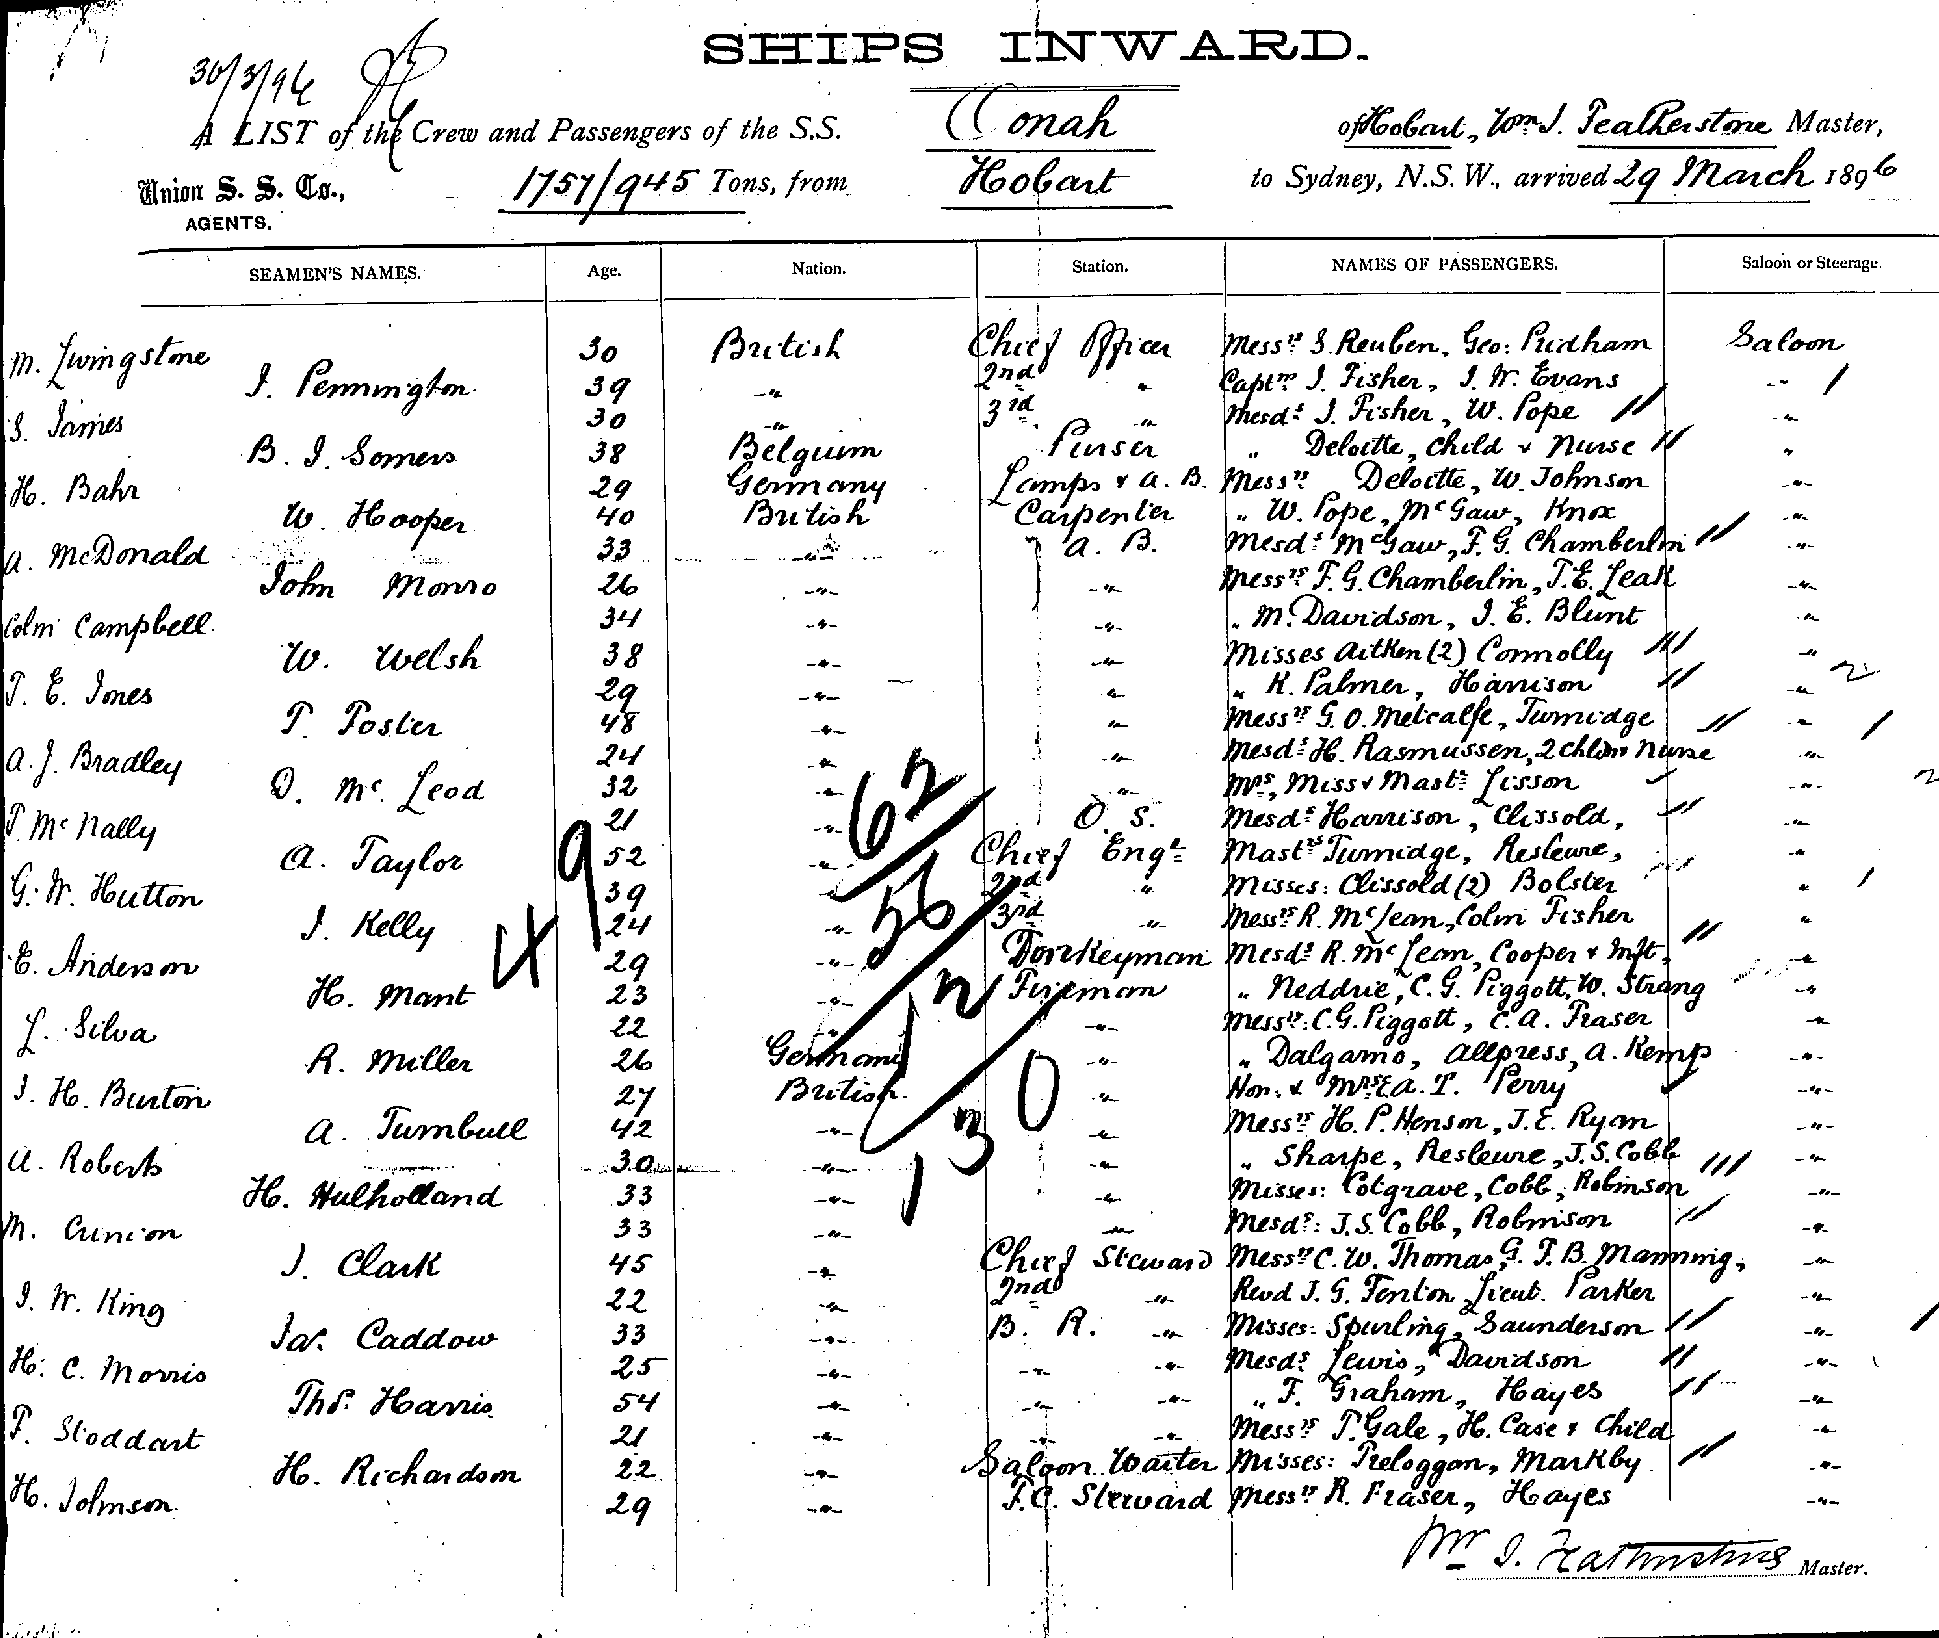 SHIPS INWARD.
30/3/96
A LIST of the Crew and Passengers of the S.S. Oonah of Hobart, Wm J. Featherstone Master,
Union S. S. Co., AGENTS. 1757/945 Tons, from Hobart to Sydney, N.S.W., arrived 29 March 1896
SEAMEN'S NAMES. Age. Nation. Station. NAMES OF PASSENGERS. Saloon or Steerage.
M. Livingstone 30 British Chief Officer Messrs S. Reuben, Geo: Pridham Saloon
J. Pennington 39 " 2nd " Captns J. Fisher, J. W. Evans "
S. James 30 " 3rd " Mesds J. Fisher, W. Pope "
B. J. Somers 38 Belgium Purser " Deloitte, Child & Nurse "
H. Bahr 29 Germany Lamps & A. B. Messrs Deloitte, W. Johnson "
W. Hooper 40 British Carpenter " W. Pope, McGaw, Knox "
A. McDonald 33 " A. B. Mesds McGaw, F. G. Chamberlin "
John Monro 26 " " Messrs F. G. Chamberlin, T. E. Leak "
Colin Campbell 34 " " " M. Davidson, J. E. Blunt "
W. Welsh 38 " " Misses Aitken (2) Connolly "
T. E. Jones 29 " " " K. Palmer, Harrison "
T. Foster 48 " " Messrs G. O. Metcalfe, Turnidge "
A. J. Bradley 24 " " Mesds H. Rasmussen, 2 chldn Nurse "
D. McLeod 32 " " Mrs, Miss & Mastr Lisson "
T. McNally 21 " O. S. Mesds Harrison, Clissold, "
A. Taylor 52 " Chief Engr Mastrs Turnidge, Resleure, "
G. W. Hutton 39 " 2nd " Misses: Clissold (2) Bolster "
J. Kelly 24 " 3rd " Messrs R. McLean, Colin Fisher "
E. Anderson 29 " Donkeyman Mesds R. McLean, Cooper & Inft, "
H. Mant 23 " Fireman " Neddrie, C. G. Piggott, W. Strang "
L. Silva 22 " " Messrs: C. G. Piggott, C. A. Fraser "
R. Miller 26 Germany " " Dalgarno, Allpress, A. Kemp "
J. H. Burton 27 British " Hon: & Mrs E A. T. Perry "
A. Turnbull 42 " " Messrs H. P. Henson, J. E. Ryan "
A. Roberts 30 " " " Sharpe, Resleure, J. S. Cobb "
H. Mulholland 33 " " Misses: Cotgrave, Cobb, Robinson "
M. Cunion 33 " " Mesds: J. S. Cobb, Robinson "
J. Clark 45 " Chief Steward Messrs C. W. Thomas, G. F. B. Manning, "
J. W. King 22 " 2nd " Revd J. G. Fenton, Lieut. Parker "
Jas. Caddow 33 " B. R. " Misses: Spurling, Saunderson "
H. C. Morris 25 " " " Mesds Lewis, Davidson "
Thos. Harris 54 " " " " F. Graham, Hayes "
F. Stoddart 21 " " " Messrs T. Gale, H. Case & Child "
H. Richardson 22 " Saloon Waiter Misses: Treloggan, Markby "
H. Johnson 29 " F. C. Steward Messrs R. Fraser, Hayes "
49
62
56
12
130
Wm J. Featherstone Master.